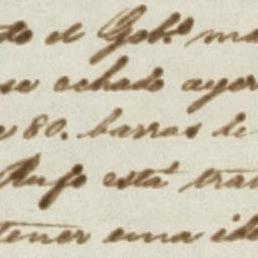 to el Gob.º ma
se echado ayer
80. barras de
Rufo está tra
tener una id